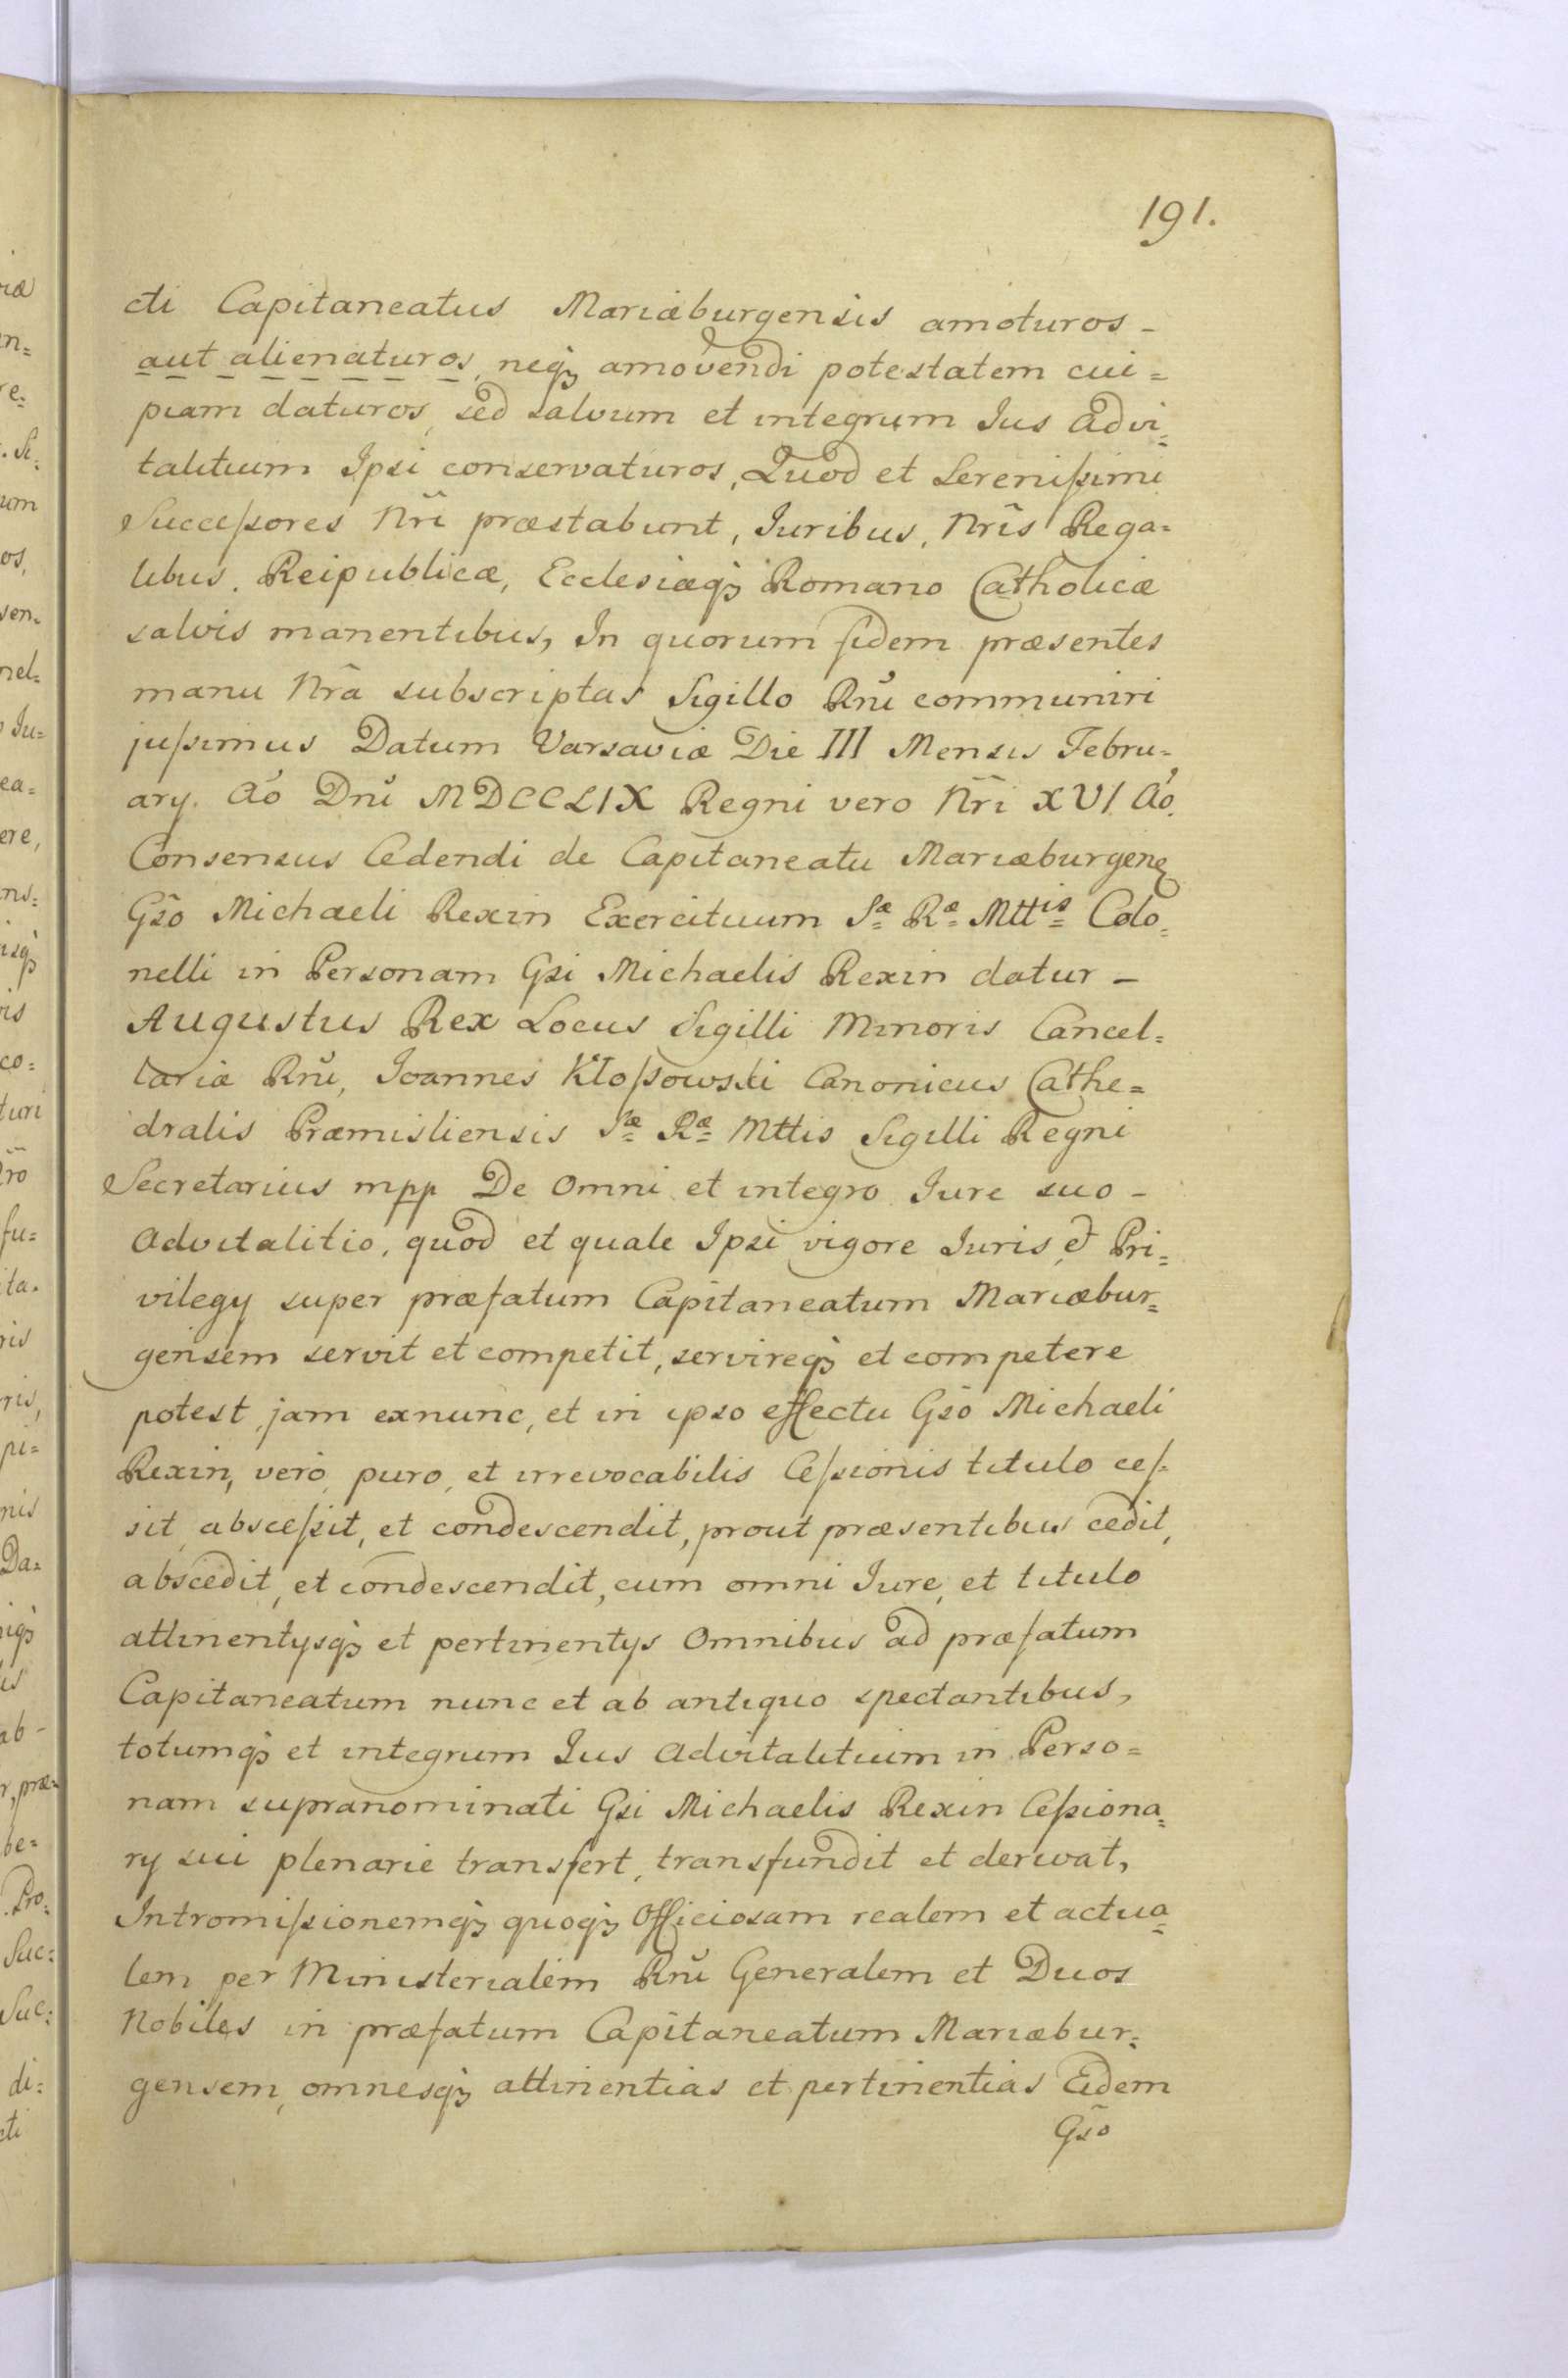 191.
cti Capitaneatus Mariæburgensis amoturos -
aut alienaturos, neqȝ amovendi potestatem cui=
piam daturos, sed salvum et integrum Ius Advi=
talitium Ipsi conservaturos, Quod et Sereniſsimi
Succeſsores Nr̃i præstabunt, Iuribus, Nr̃is Rega=
libus. Reipublicæ, Ecclesiæqȝ Romano Catholicæ
salvis manentibus, In quorum fidem præsentes
manu Nr̃a subscriptas Sigillo Rñi communiri
juſsimus Datum Varsaviæ Die III Mensis Febru=
ary. Aõ Dnĩ MDCCLIX Regni vero Nr̃i XVI Aõ.
Consensus Cedendi de Capitaneatu Mariæburgenȩ
Gsõ Michaeli Rexin Exercituum Sæ Ræ Mttis Colo=
nelli in Personam Gsi Michaelis Rexin datur -
Augustus Rex Locus Sigilli Minoris Cancel=
lariæ Rñi, Joannes Kłoſsowski Canonicus Cathe=
dralis Præmisliensis Sæ Ræ Mttis Sigilli Regni
Secretarius mpp De Omni et integro Iure suo -
Advitalitio, quod et quale Ipsi vigore Iuris et Pri=
vilegy super præfatum Capitaneatum Mariæbur=
gensem servit et competit, servireqȝ et competere
potest jam exnunc, et in ipso effectu Gsõ Michaeli
Rexin, vero, puro, et irrevocabilis Ceſsionis titulo ceſ=
sit, absceſsit, et condescendit, prout præsentibus cedit,
abscedit, et condescendit, cum omni Iure, et titulo
attinentysqȝ et pertinentys Omnibus ad præfatum
Capitaneatum nunc et ab antiquo spectantibus,
totumqȝ et integrum Ius Advitalitium in Perso=
nam supranominati Gsi Michaelis Rexin Ceſsiona=
ry sui plenarie transfert, transfundit et derivat,
Intromiſsionemqȝ quoqȝ Officiosam realem et actua=
lem per Ministerialem Rñi Generalem et Duos
Nobiles in præfatum Capitaneatum Mariæbur=
gensem, omnesqȝ attinentias et pertinentias Eidem
Gsõ